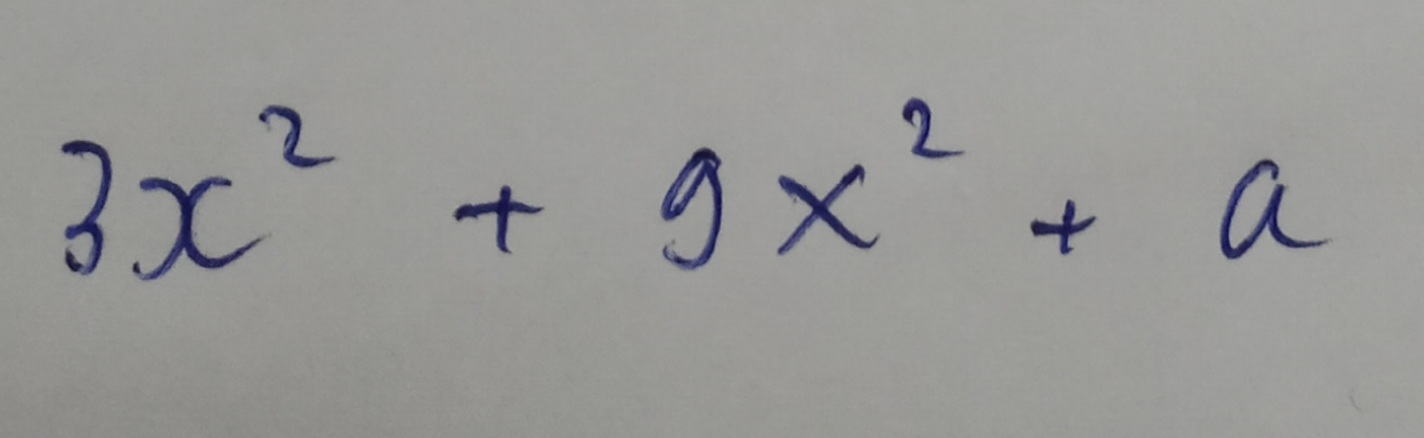 3x² + 9x² + a